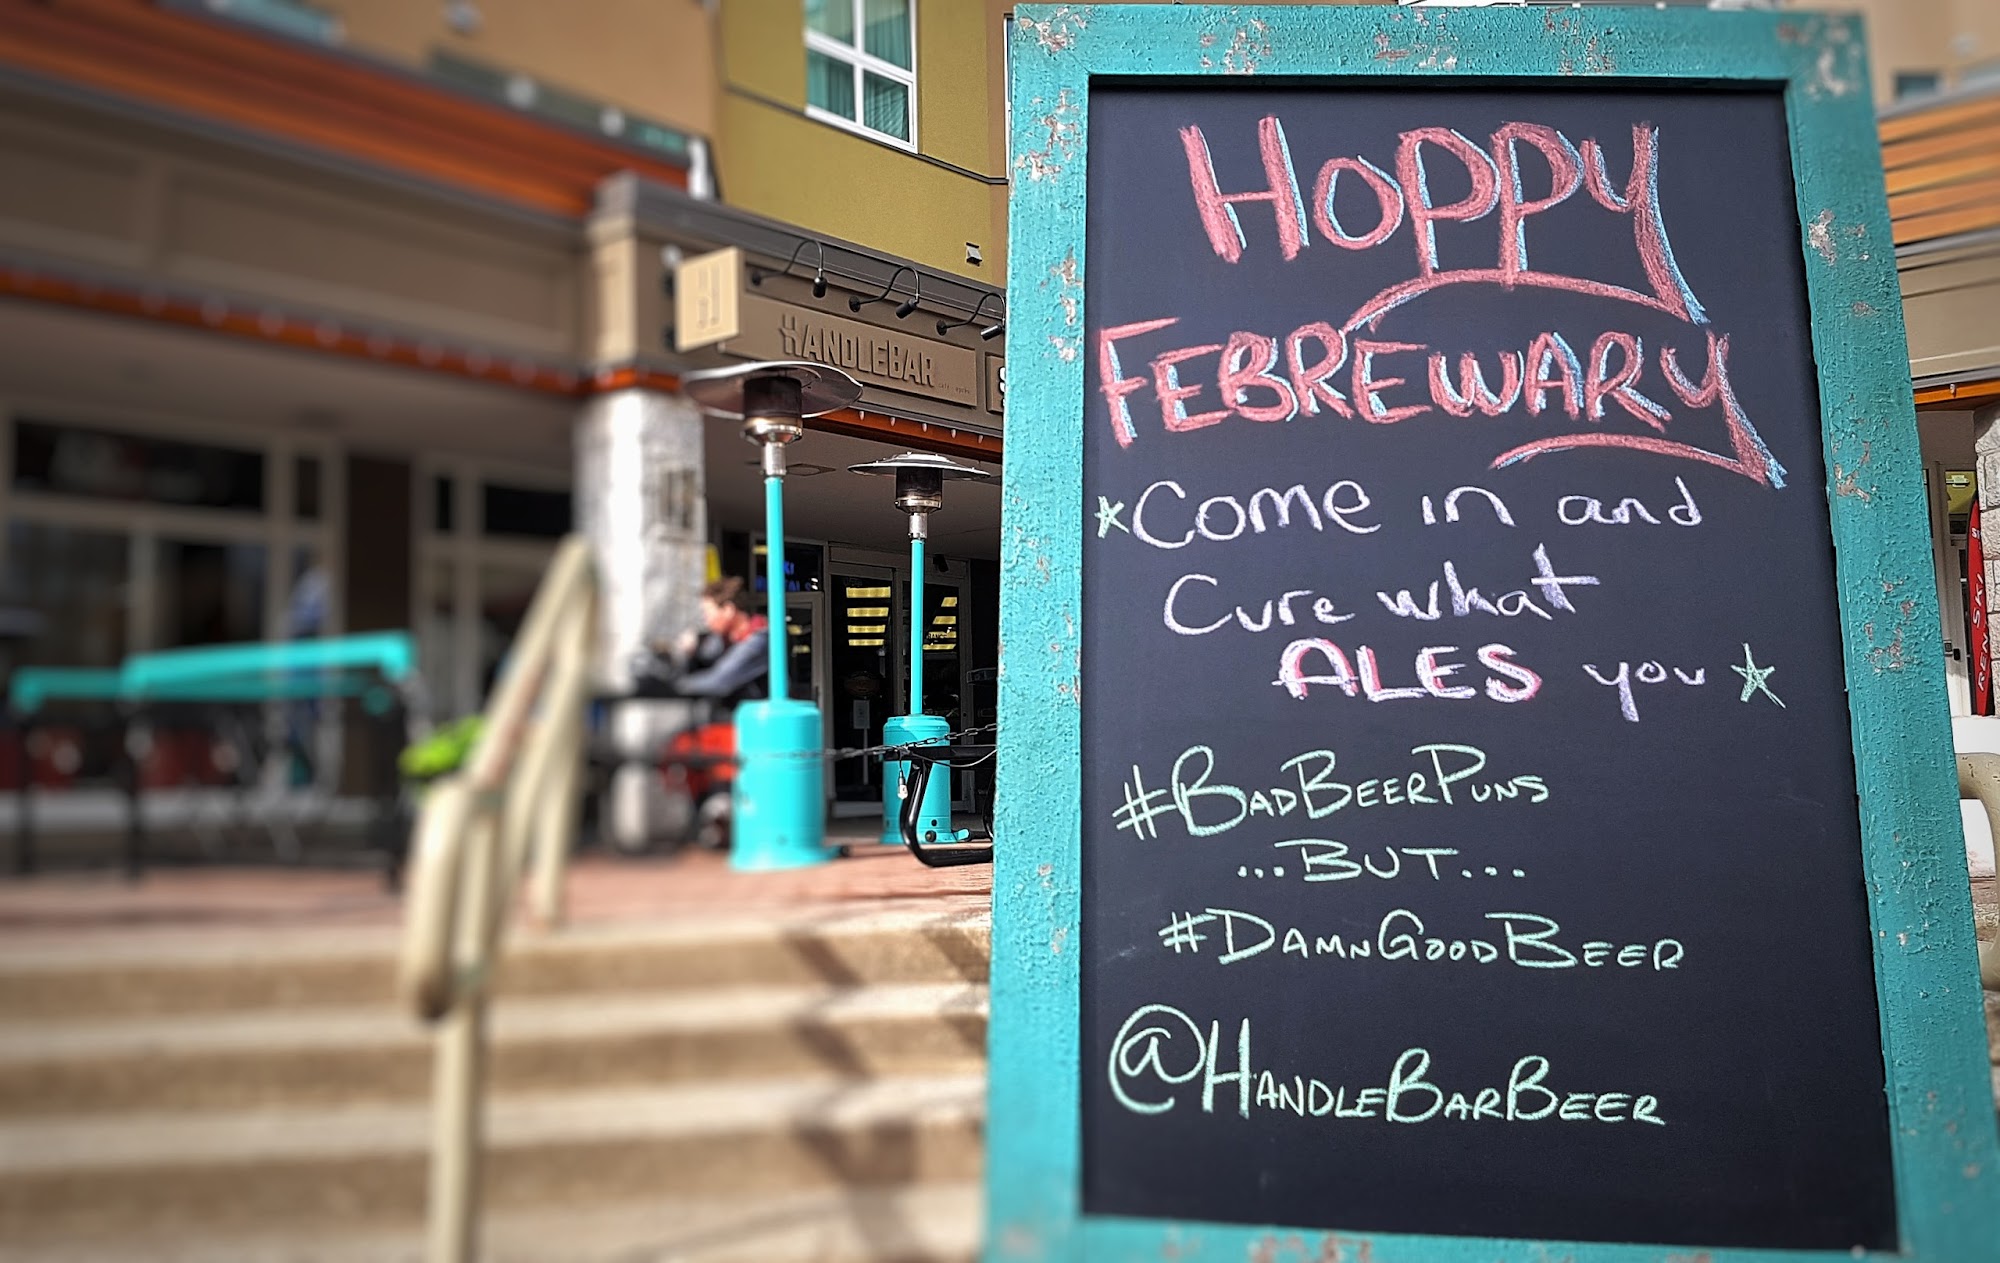 HANDLEBAR
HOPPY
FEBREWARY
Come in and
Cure what
ALES you
#BADBEERPUNS
...BUT...
#DAMNGOODBEER
@HANDLEBARBEER
RENT SKI